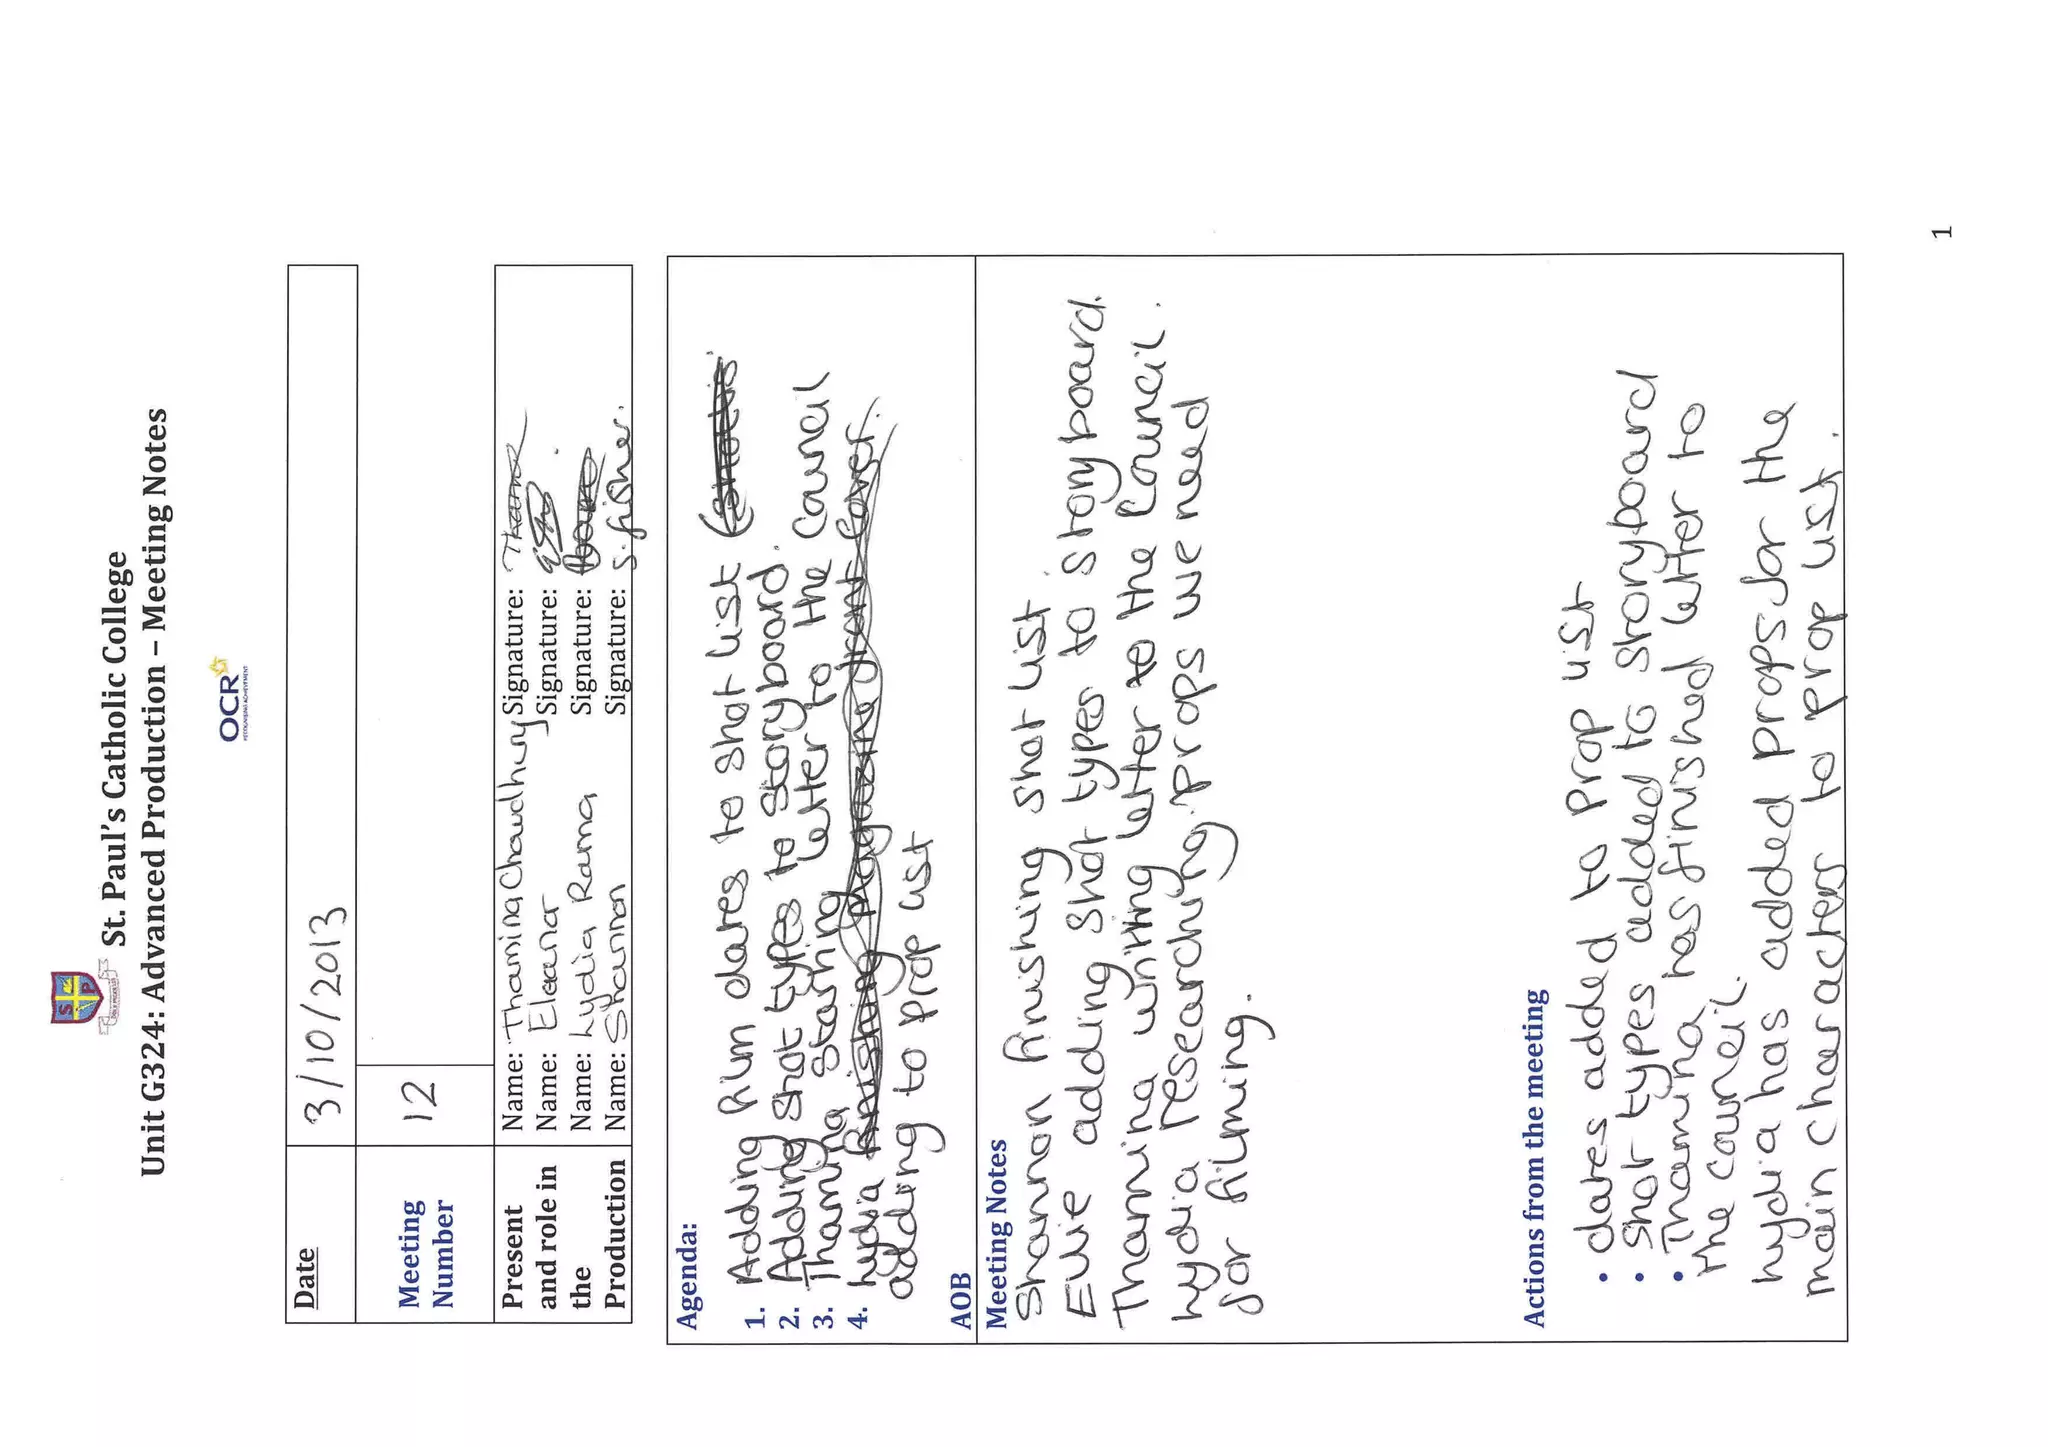 St. Paul's Catholic College
Unit G324: Advanced Production – Meeting Notes
OCR
RECOGNISING ACHIEVEMENT
Date 3/10/2013
Meeting Number 12
Present and role in the Production
Name: Thamina Chaudhury Signature:
Name: Eleanor Signature:
Name: Lydia Rama Signature:
Name: Shannon Signature: S. fisher.
Agenda:
1. Adding film dates to shot list
2. Adding shot types to storyboard.
3. Thamina starting letter to the council
4. lydia finishing magazine front cover.
adding to prop list
AOB
Meeting Notes
Shannon finishing shot list
Ellie adding shot types to storyboard.
Thamina writing letter to the Council.
lydia researching props we need
for filming.
Actions from the meeting
• dates added to prop list
• Shot types added to storyboard
• Thamina has finished letter to
the council.
lydia has added props for the
main characters to prop list.
1